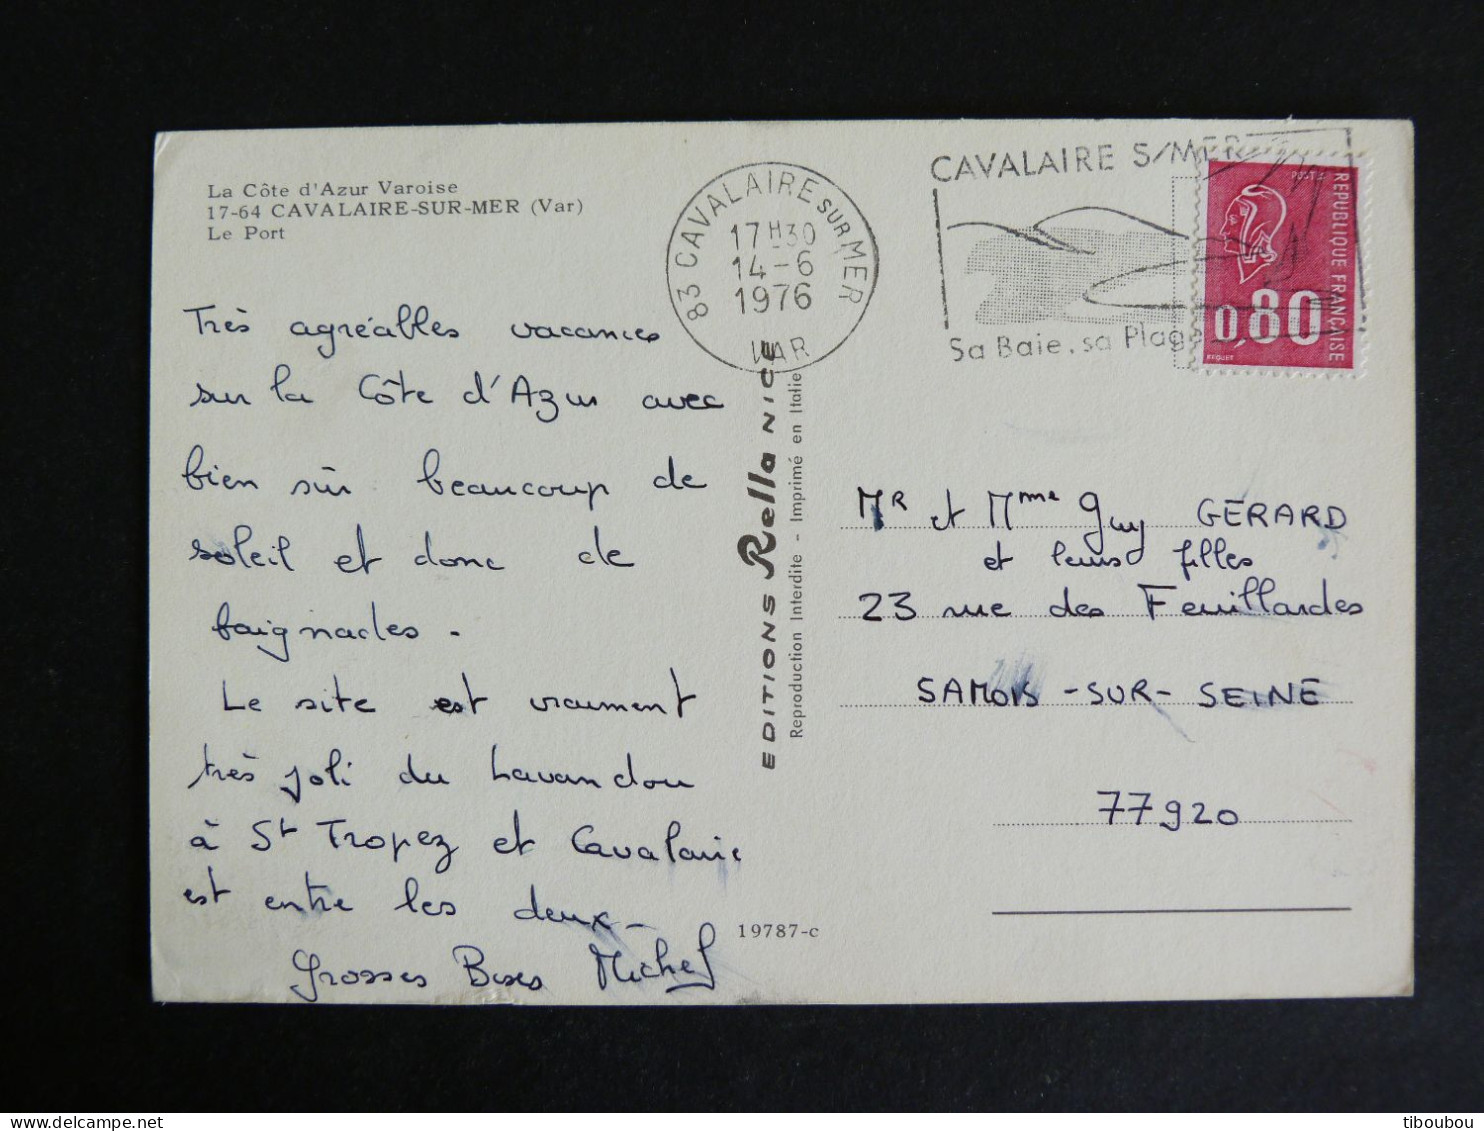 La Côte d'Azur Varoise
17-64 CAVALAIRE-SUR-MER (Var)
Le Port
Très agréables vacances
sur la Côte d'Azur avec
bien sûr beaucoup de
soleil et donc de
baignades.
Le site est vraiment
très joli du Lavandou
à St Tropez et Cavalaire
est entre les deux
Grosses Bises Michel
83 CAVALAIRE SUR MER
17H30
14-6
1976
VAR
CAVALAIRE S/MER
Sa Baie, sa Plage
POSTES
REPUBLIQUE FRANÇAISE
0,80
BEQUET
EDITIONS Rella NICE
Reproduction Interdite - Imprimé en Italie
19787-c
MR et Mme Guy GÉRARD
et leurs filles
23 rue des Feuillardes
SAMOIS-SUR-SEINE
77920
tiboubou